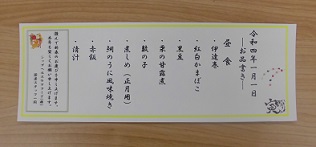 令和四年一月一日
―お品書き―
昼食
・伊達巻
・紅白かまぼこ
・黒豆
・栗の甘露煮
・数の子
・煮しめ(正月用)
・鯛のうに風味焼き
・赤飯
・清汁